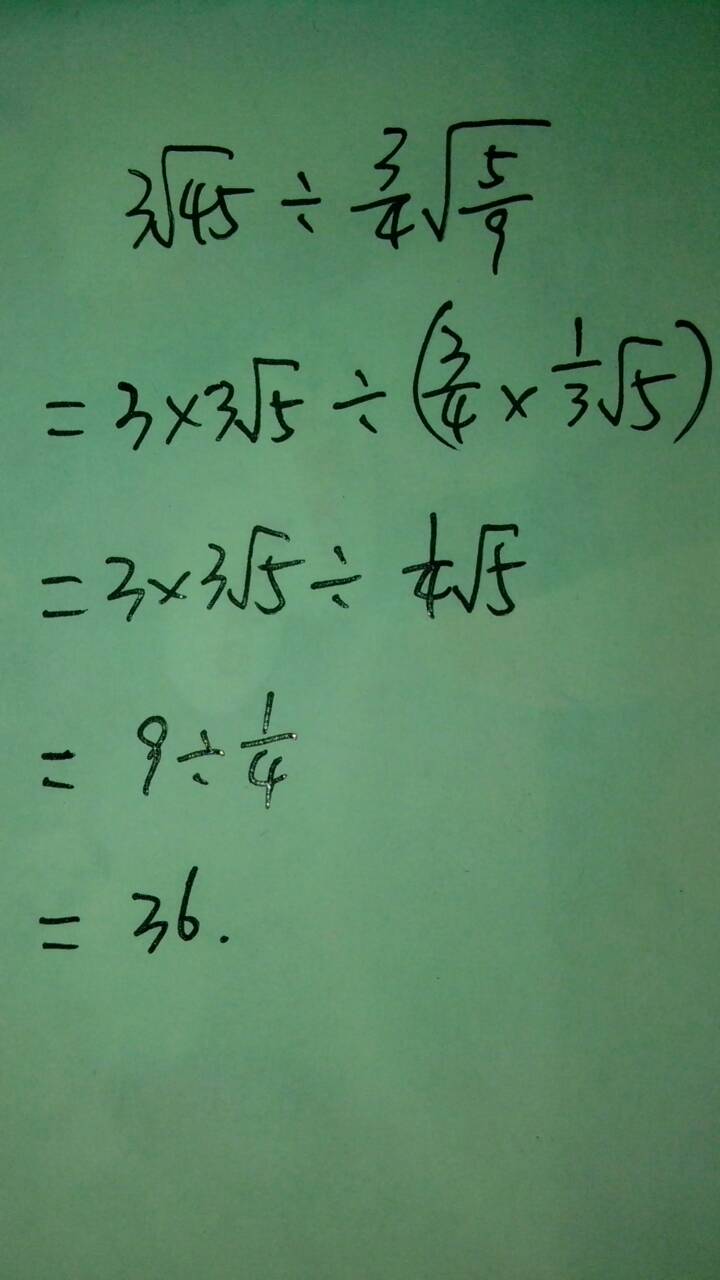 3√45 ÷ 3/4 √(5/9)
= 3×3√5 ÷ (3/4 × 1/3 √5)
= 3×3√5 ÷ 1/4 √5
= 9 ÷ 1/4
= 36.